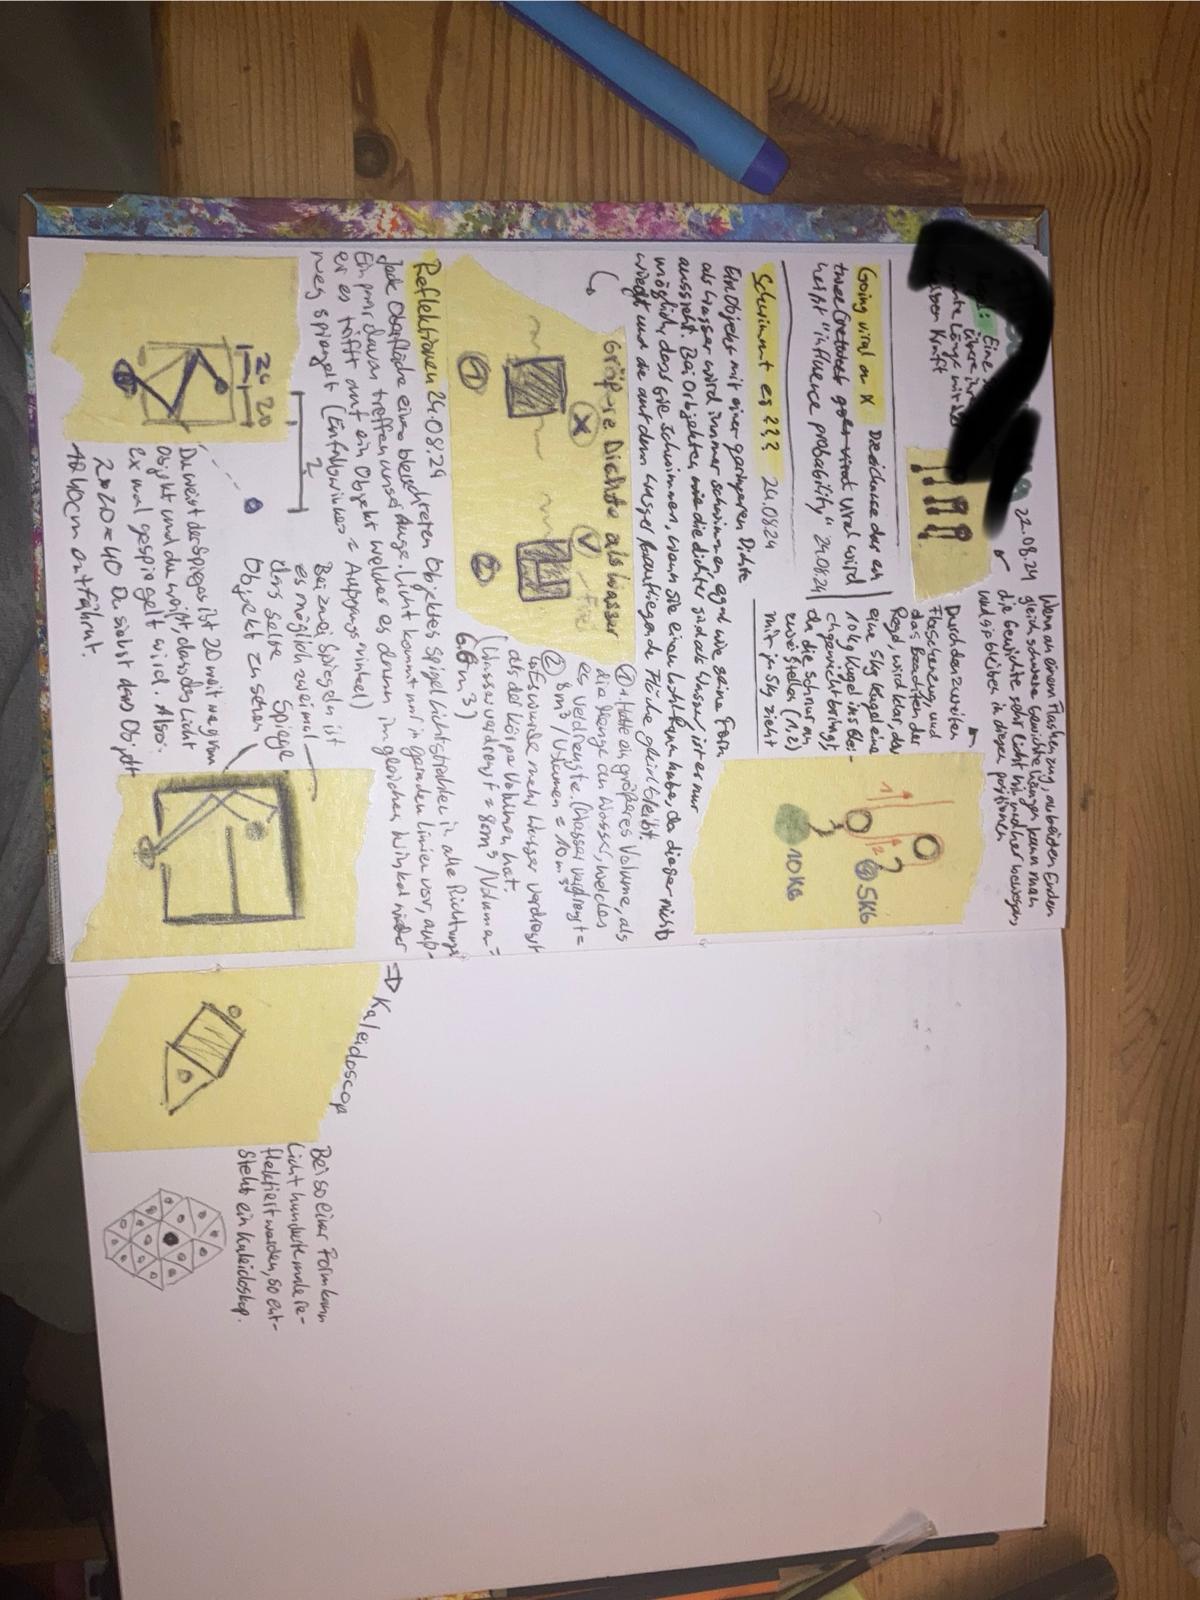 22.08.24
Eine
über ihre
Länge mit der
selben Kraft
Wenn an einem Flaschenzug, an beiden Enden
gleich schwere Gewichte hängen kann man
die Gewichte sehr leicht hin und her bewegen,
und sie bleiben in diesen positionen
Durch den zweiten
Flaschenzug, und
das Beachten der
Regel, wird klar, das
eine 5kg Kugel eine
10kg Kugel ins Glei-
chgewicht bringt,
da die Schnur an
zwei Stellen (1,2)
mit je 5kg zieht
1
2
5KG
10KG
Going viral on X
Die chance das ein
tweet viral wird
heißt "influence probability" 24.08.24
Schwimmt es??? 24.08.24
Ein Objekt mit einer geringeren Dichte
als Wasser wird immer schwimmen egal wie seine Form
aussieht. Bei Objekten die dichter sind als Wasser, ist es nur
möglich, dass sie schwimmen, wenn sie einen haben, da dieser nichts
wiegt und die auf dem Wasser Fläche gleich bleibt.
Größere Dichte als Wasser
X
1
2
① Hatte ein größeres Volume, als
die Menge an Wasser, welches
es verdrängte. (Wasser verdrängt =
8m³ / Volumen = 10m³)
② Es wurde mehr Wasser verdrängt
als der Körper Volumen hat.
(Wasser verdrängt = 8m³ / Volumen =
6.6m³)
Reflektionen 24.08.24
Jede Oberfläche eines Objektes spiegelt Lichtstrahlen in alle Richtungen
Ein paar davon treffen unser Auge. Licht kommt nur in geraden Linien vor, auß-
er es trifft auf ein Objekt welcher es dann im gleichen Winkel wieder
weg spiegelt (Einfallswinkel = Ausgangswinkel)
20 20
?
Bei zwei Spiegeln ist
es möglich zweimal
das selbe Spiegel
Objekt zu sehen
Du weist der Spiegel ist 20 weit weg vom
Objekt und du weißt, dass das Licht
2x mal gespiegelt wird. Also:
2 x 20 = 40 Du siehst das Objekt
40cm entfernt.
⇒ Kaleidoscop
Bei so einer Form kann
Licht hunderte male re-
flektiert werden, so ent-
steht ein Kaleidoskop.